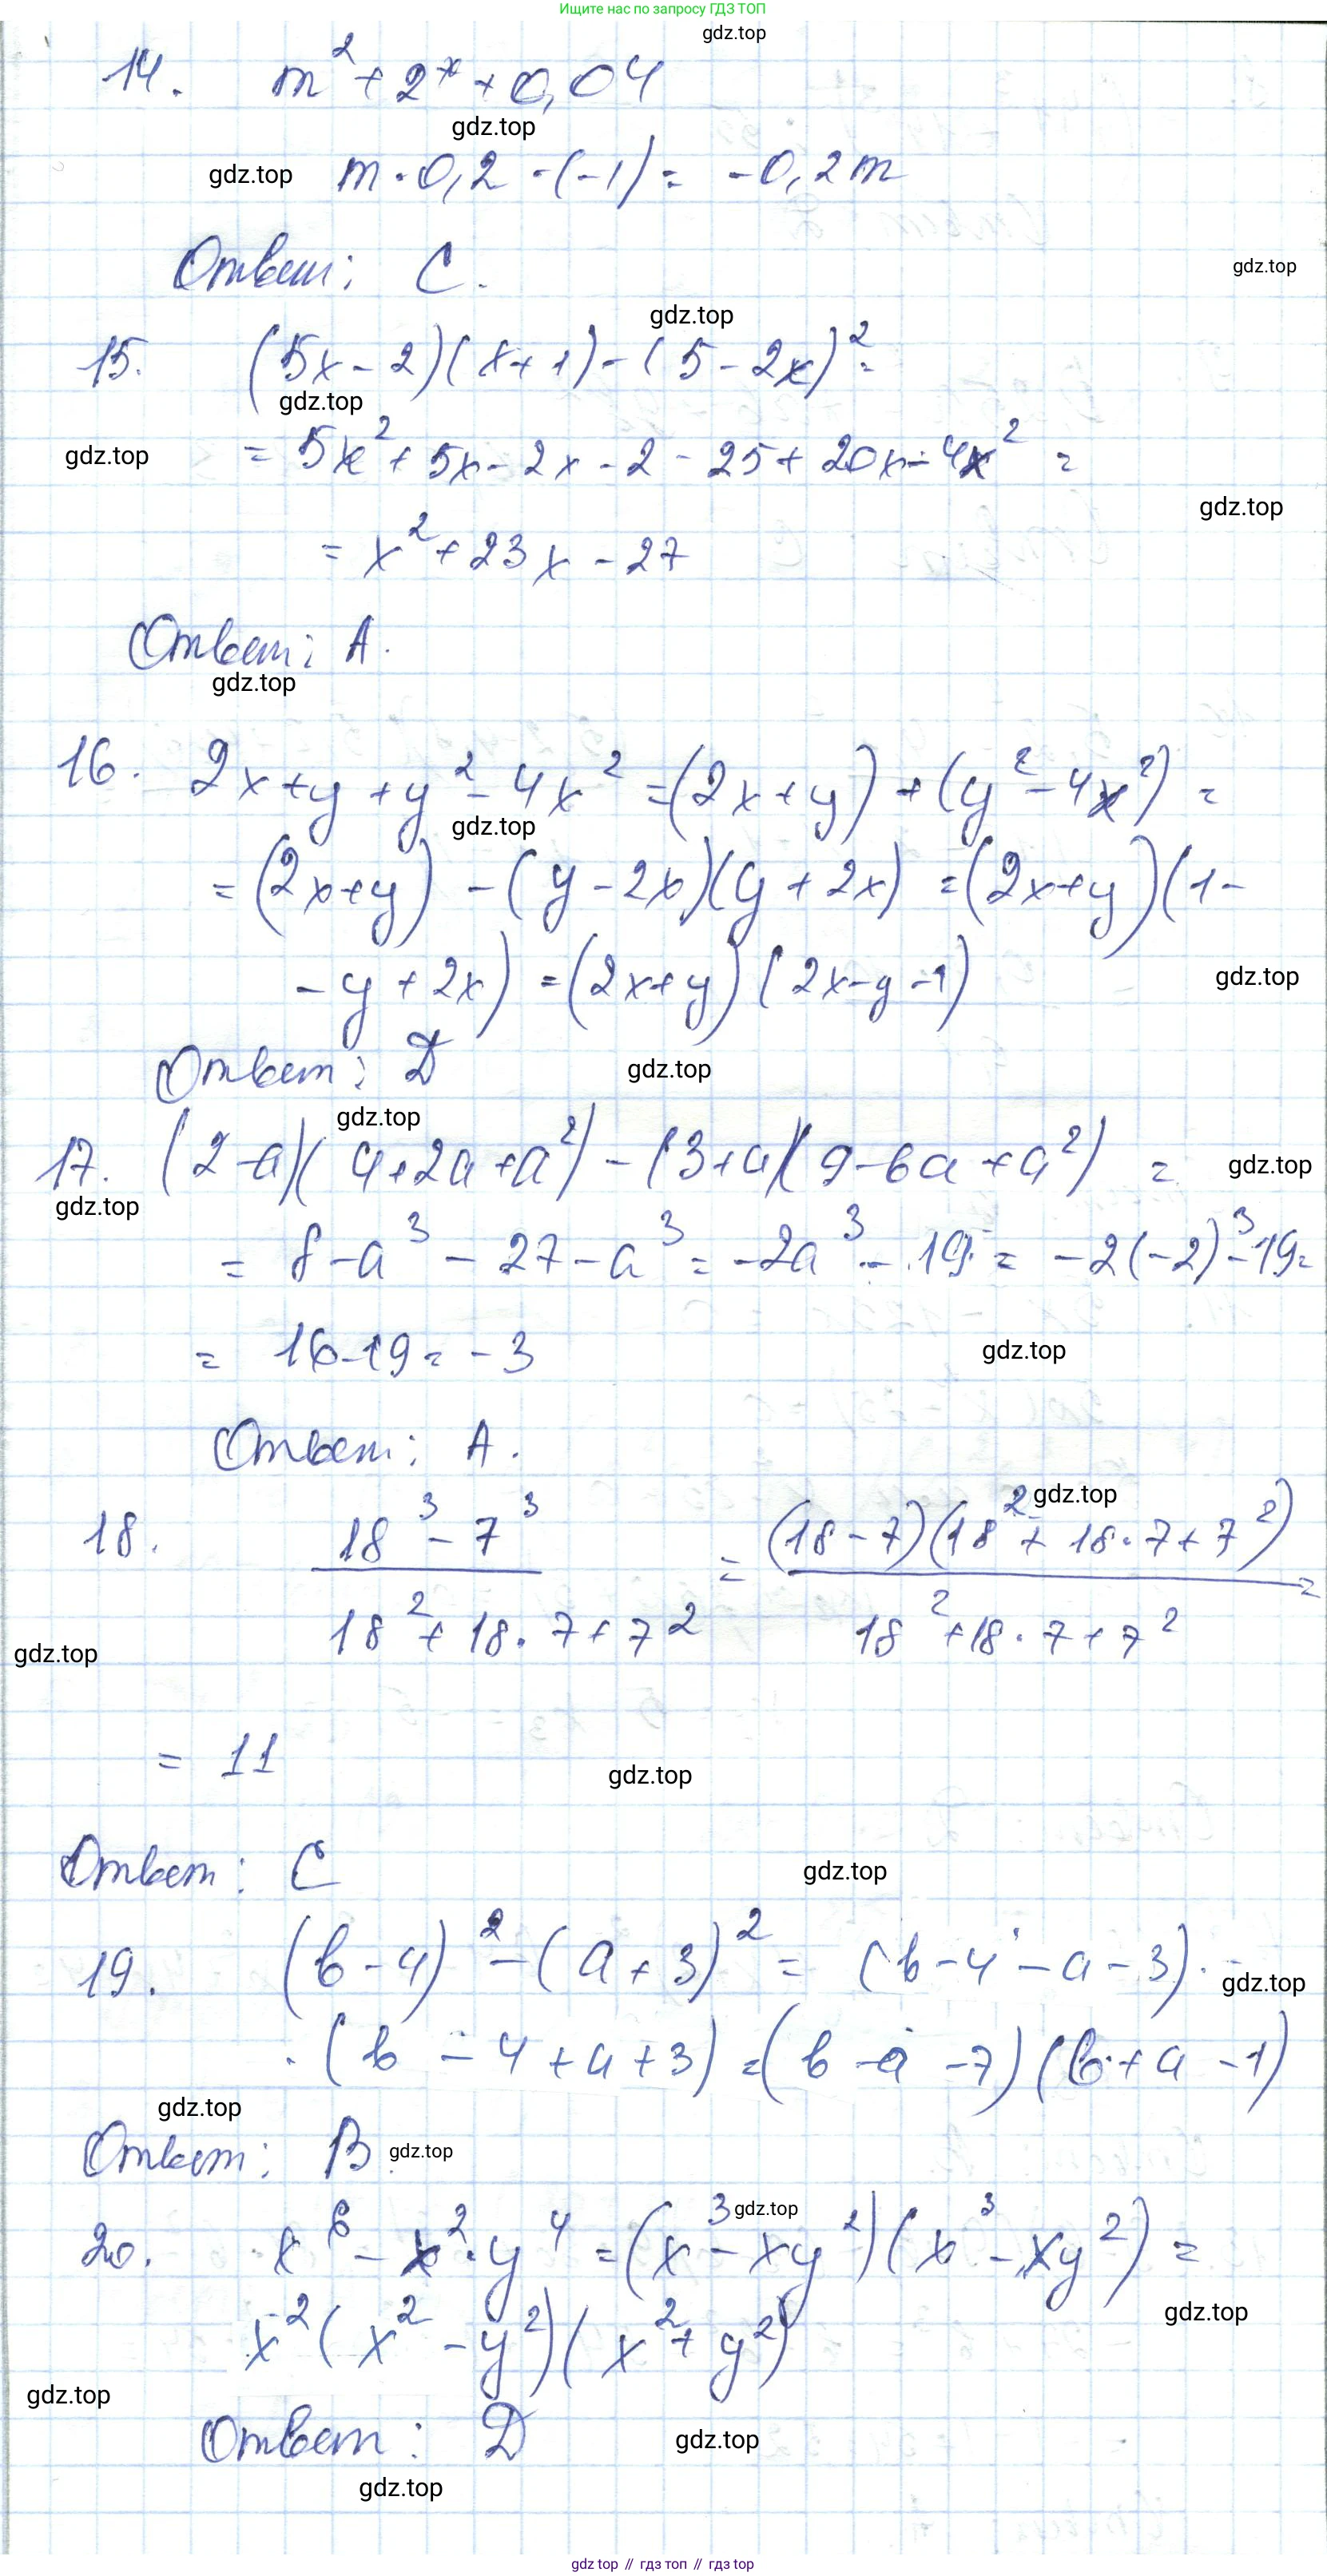 Ищите нас по запросу ГДЗ ТОП
gdz.top
14. m² + 2* + 0,04
gdz.top
gdz.top m · 0,2 · (-1) = -0,2m
Ответ: C.
gdz.top
gdz.top
15. (5x - 2)(x + 1) - (5 - 2x)² =
gdz.top
gdz.top = 5x² + 5x - 2x - 2 - 25 + 20x - 4x² =
gdz.top
= x² + 23x - 27
Ответ: A.
gdz.top
16. 2x + y + y² - 4x² = (2x + y) + (y² - 4x²) =
gdz.top
= (2x + y) - (y - 2x)(y + 2x) = (2x + y)(1 -
- y + 2x) = (2x + y)(2x - y - 1) gdz.top
Ответ: D gdz.top
gdz.top
17. (2 - a)(4 + 2a + a²) - (3 + a)(9 - 6a + a²) = gdz.top
gdz.top
= 8 - a³ - 27 - a³ = -2a³ - 19 = -2(-2)³ - 19 =
= 16 - 19 = -3 gdz.top
Ответ: A.
gdz.top
18. 18³ - 7³ / 18² + 18 · 7 + 7² = (18 - 7)(18² + 18 · 7 + 7²) / 18² + 18 · 7 + 7² =
gdz.top
= 11 gdz.top
Ответ: C gdz.top
19. (b - 4)² - (a + 3)² = (b - 4 - a - 3) · gdz.top
· (b - 4 + a + 3) = (b - a - 7)(b + a - 1)
gdz.top
Ответ: B. gdz.top
gdz.top
20. x⁶ - x² · y⁴ = (x³ - xy²)(x³ - xy²) =
gdz.top
x² (x² - y²)(x² + y²)
gdz.top
Ответ: D gdz.top
gdz.top
gdz.top // гдз топ // гдз top